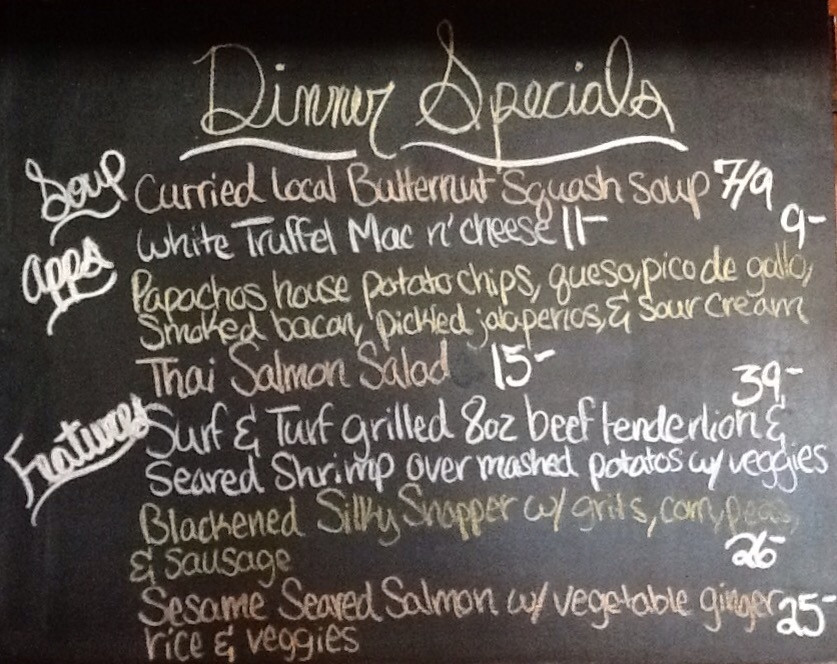 Dinner Specials
Soup Curried Local Butternut Squash Soup 7/9
apps White Truffel Mac n' cheese 11- 9-
Papachos house potato chips, queso, pico de gallo,
Smoked bacon, pickled jalapenos, & sour cream
Thai Salmon Salad 15- 39-
Features Surf & Turf grilled 8oz beef tenderlion &
Seared Shrimp over mashed potatos w/ veggies
Blackened Silky Snapper w/ grits, corn, peas,
& sausage 26-
Sesame Seared Salmon w/ vegetable ginger 25-
rice & veggies